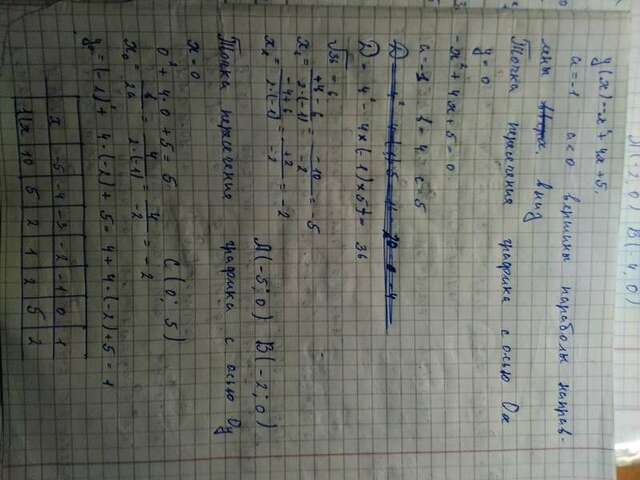 A(2; 0) B(4; 0)
y(x) = -x² + 4x + 5.
a = -1 a < 0 вершины параболы направ-
лены вниз
Точка пересечения графика с осью Ох
y = 0
-x² + 4x + 5 = 0
a = -1 b = 4 c = 5
D = 4² - 4×(-1)×5 = 36
√36 = 6
x₁ = -4-6 / 2·(-1) = -10 / -2 = -5
x₂ = -4+6 / 2·(-1) = +2 / -2 = -2
A(-5; 0) B(-2; 0)
Точка пересечения графика с осью Оу
x = 0
0² + 4·0 + 5 = 5 C(0; 5)
x₀ = b / 2a = 4 / 2·(-1) = 4 / -2 = -2
y₀ = (-2)² + 4·(-2) + 5 = 4 + 4·(-2) + 5 = 1
x -5 -4 -3 -2 -1 0 1
y 10 5 2 1 2 5 2